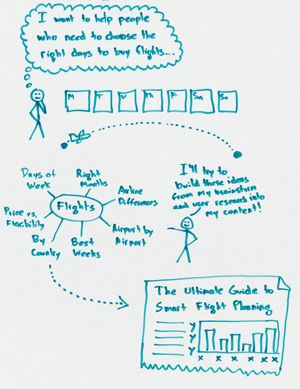 I want to help people
who need to choose the
right days to buy flights...
M
T
W
Th
F
Sa
Su
Days of
Week
Right
Months
Airline
Differences
Price vs.
Flexibility
Flights
Airport by
Airport
By
Country
Best
Weeks
I'll try to
build these ideas
from my brainstorm
and user research into
my content!
The Ultimate Guide to
Smart Flight Planning
y
y
y
x x x x x x